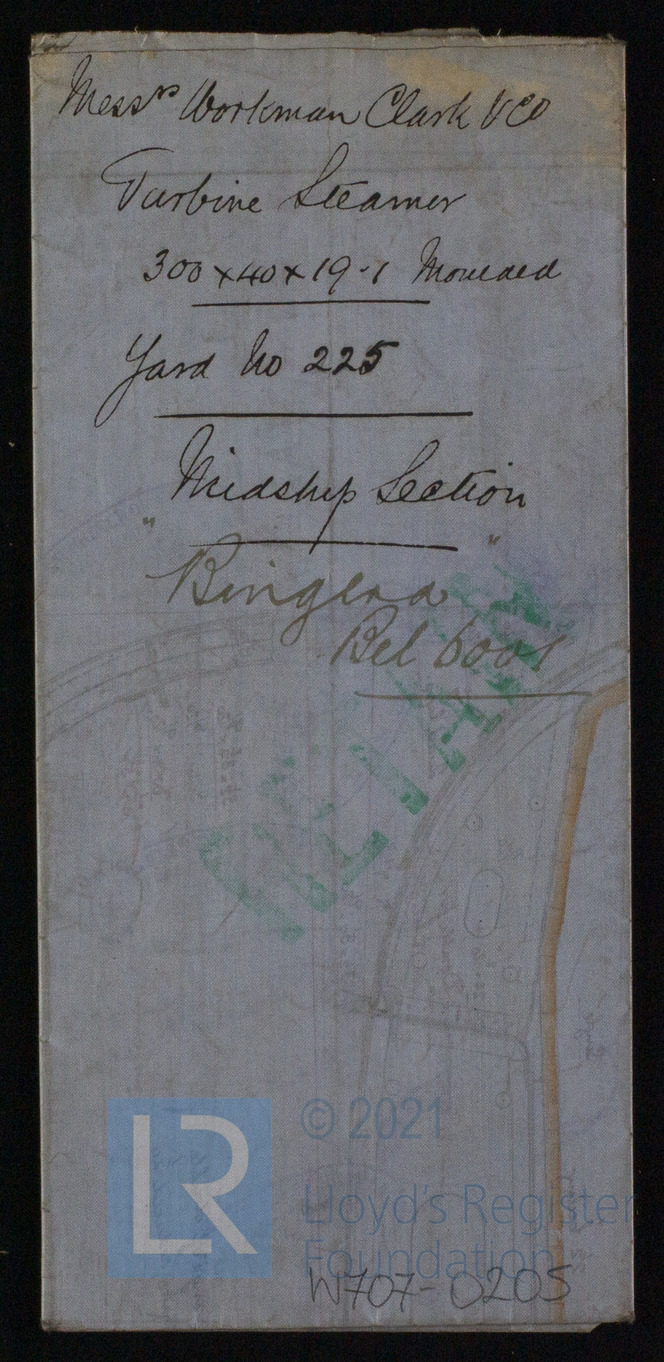 Messrs Workman Clark & Co
Turbine Steamer
300 x 40 x 19-1 Moulded
Yard No 225
Midship Section
"Bingera"
Bel 6001
LR
© 2021
Lloyd's Register
Foundation
W707-0205